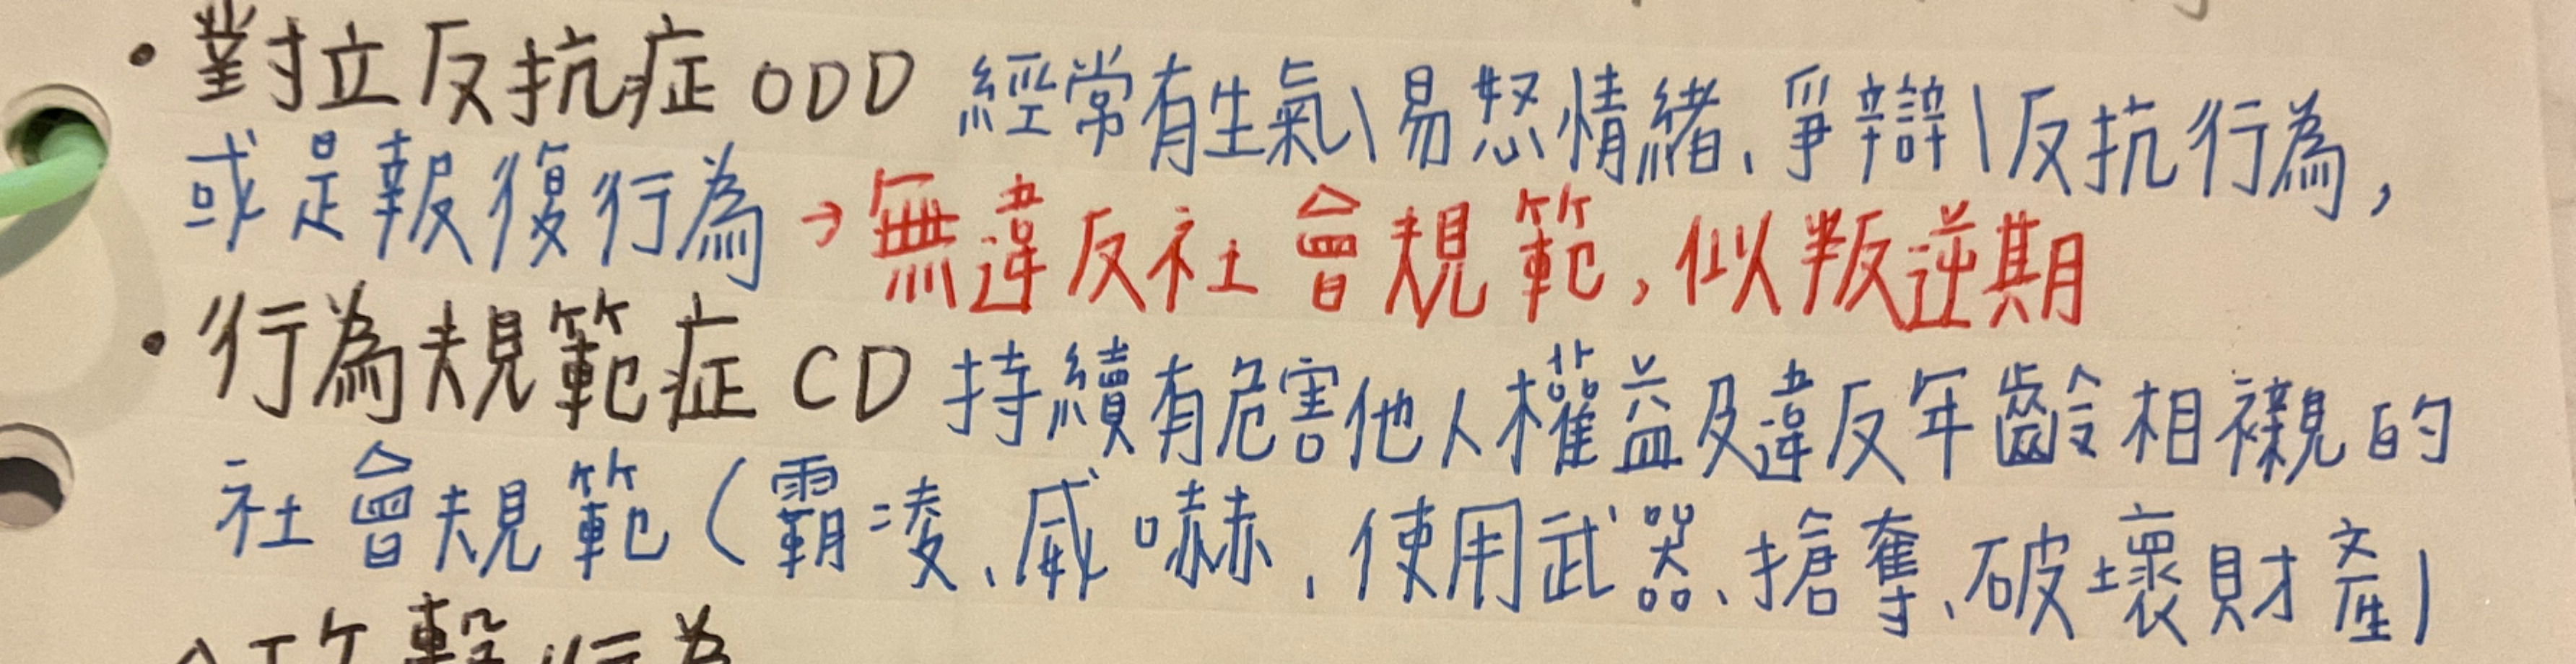 ·對立反抗症 ODD 經常有生氣\易怒情緒、爭辯\反抗行為,
或是報復行為→無違反社會規範,似叛逆期
·行為規範症 CD 持續有危害他人權益及違反年齡相襯的
社會規範(霸凌、威嚇、使用武器、搶奪、破壞財產)
攻擊行為